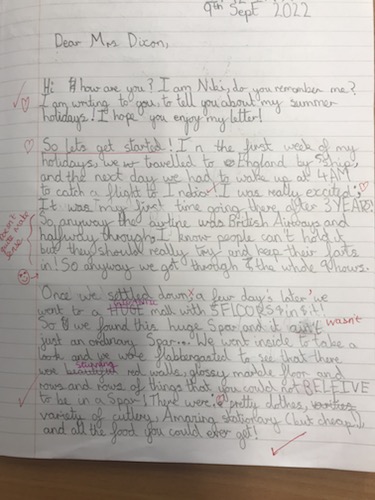 9th Sept 2022
Dear Mrs Dixon,
Hi how are you? I am Niki, do you remember me?
I am writing to you, to tell you about my summer
holidays! I hope you enjoy my letter!
So lets get started! In the first week of my
holidays, we travelled to England by ship,
and the next day we had to wake up at 4AM
to catch a flight to India! I was really excited;
It was my first time going there after 3 YEARS!
So anyway the airline was British Airways and
halfway through, I know people can't hold it
but they should really try and keep their farts
in! So anyway we got through the whole 9 hours.
Once we settled down, a few day's later we
went to a HUGE mall with
So we found this huge Spar and it ain't wasn't
just an ordinary Spar... We went inside to take a
look and we were flabbergasted to see that there
were stunning red walls, glossy marble floor and
rows and rows of things that you could not BELEIVE
to be in a Spar! There were: pretty clothes,
variety of cutlery, Amazing stationary (but cheap)
and all the food you could ever get!